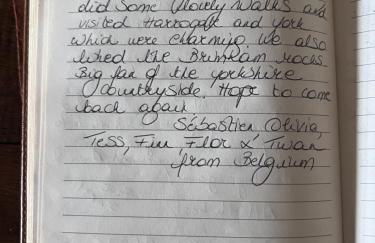 did some lovely walks and
visited Harrogate and York
which were charming. We also
liked the Brimham rocks.
Big fan of the Yorkshire
countryside. Hope to come
back again
Sébastien Olivia,
Tess, Finn, Flor & Twan
from Belgium